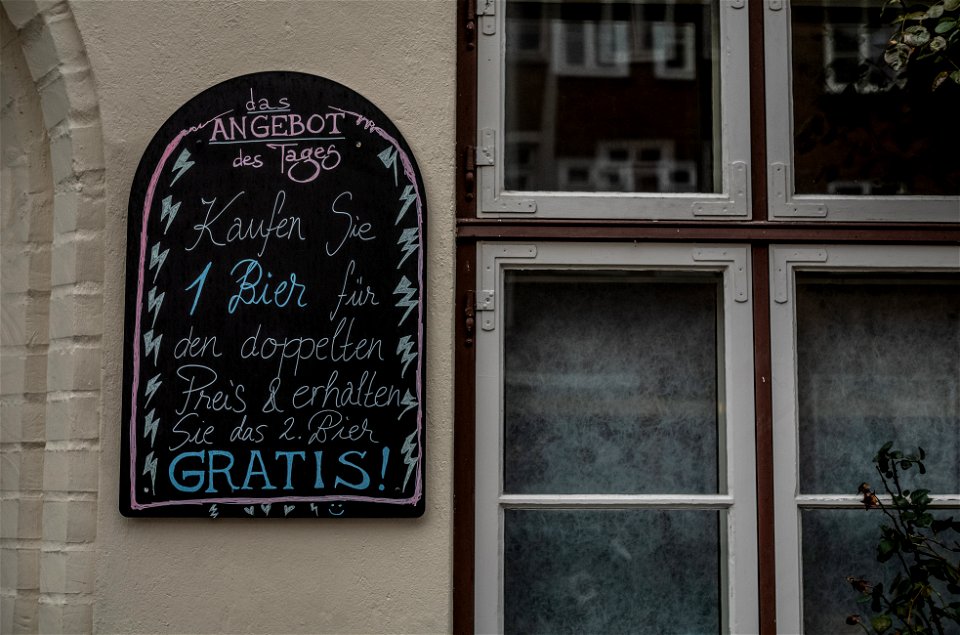 das
ANGEBOT
des Tages
Kaufen Sie
1 Bier für
den doppelten
Preis & erhalten
Sie das 2. Bier
GRATIS!